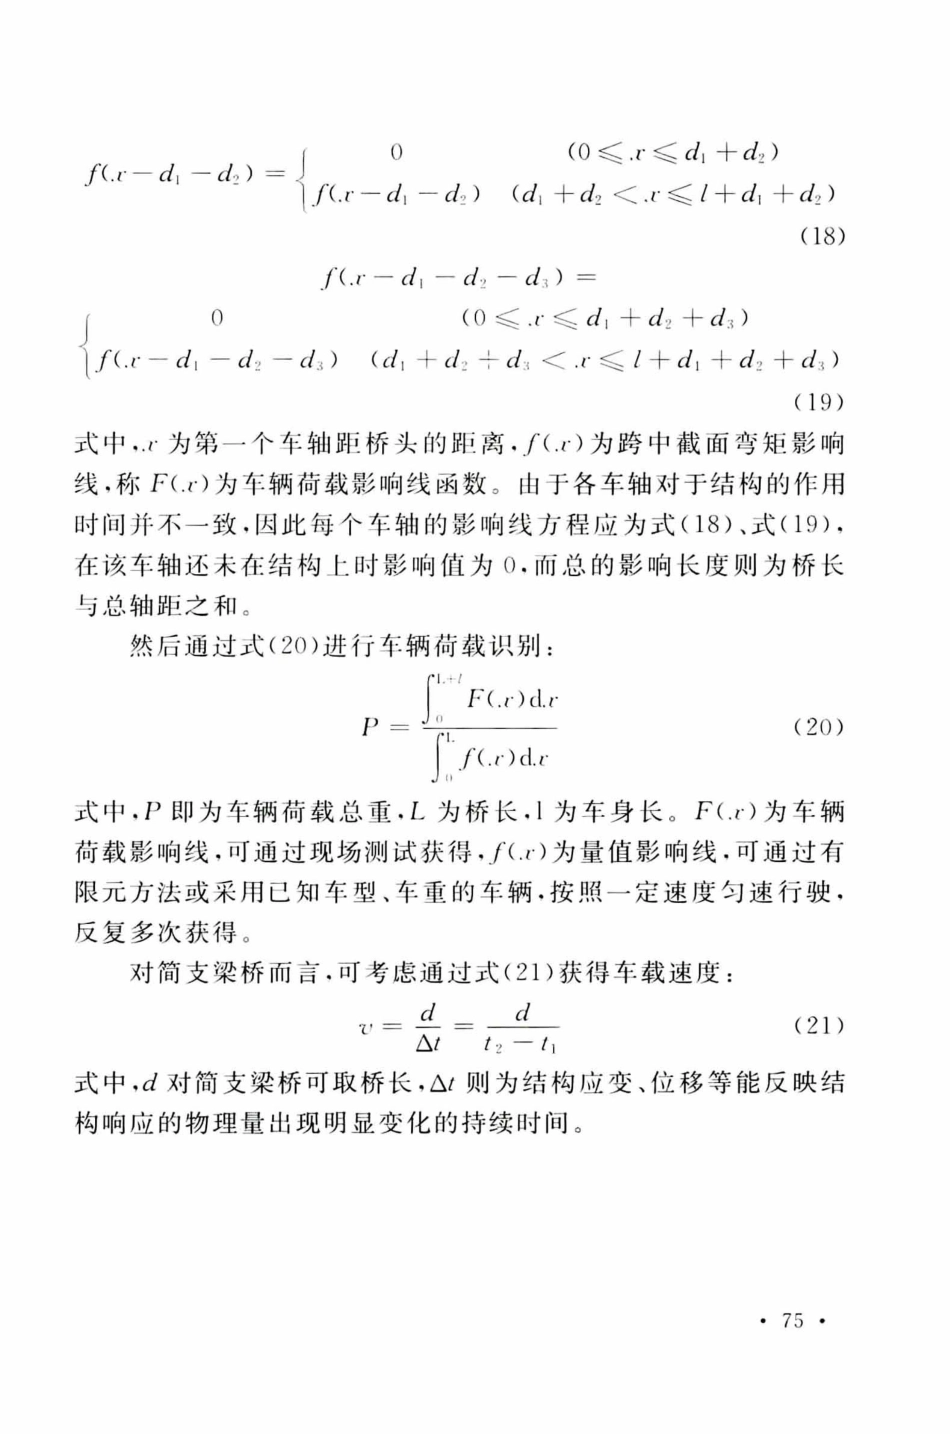 f(x－d₁－d₂)＝{ 0 (0≤x≤d₁＋d₂)
f(x－d₁－d₂) (d₁＋d₂＜x≤l＋d₁＋d₂)
(18)
f(x－d₁－d₂－d₃)＝
{ 0 (0≤x≤d₁＋d₂＋d₃)
f(x－d₁－d₂－d₃) (d₁＋d₂＋d₃＜x≤l＋d₁＋d₂＋d₃)
(19)
式中,x 为第一个车轴距桥头的距离,f(x)为跨中截面弯矩影响
线,称 F(x)为车辆荷载影响线函数。由于各车轴对于结构的作用
时间并不一致,因此每个车轴的影响线方程应为式(18)、式(19),
在该车轴还未在结构上时影响值为 0,而总的影响长度则为桥长
与总轴距之和。
然后通过式(20)进行车辆荷载识别:
P＝∫₀^{L+l} F(x)dx / ∫₀^{L} f(x)dx (20)
式中,P 即为车辆荷载总重,L 为桥长,l 为车身长。F(x)为车辆
荷载影响线,可通过现场测试获得,f(x)为量值影响线,可通过有
限元方法或采用已知车型、车重的车辆,按照一定速度匀速行驶,
反复多次获得。
对简支梁桥而言,可考虑通过式(21)获得车载速度:
v＝d/Δt＝d/(t₂－t₁) (21)
式中,d 对简支梁桥可取桥长,Δt 则为结构应变、位移等能反映结
构响应的物理量出现明显变化的持续时间。
· 75 ·